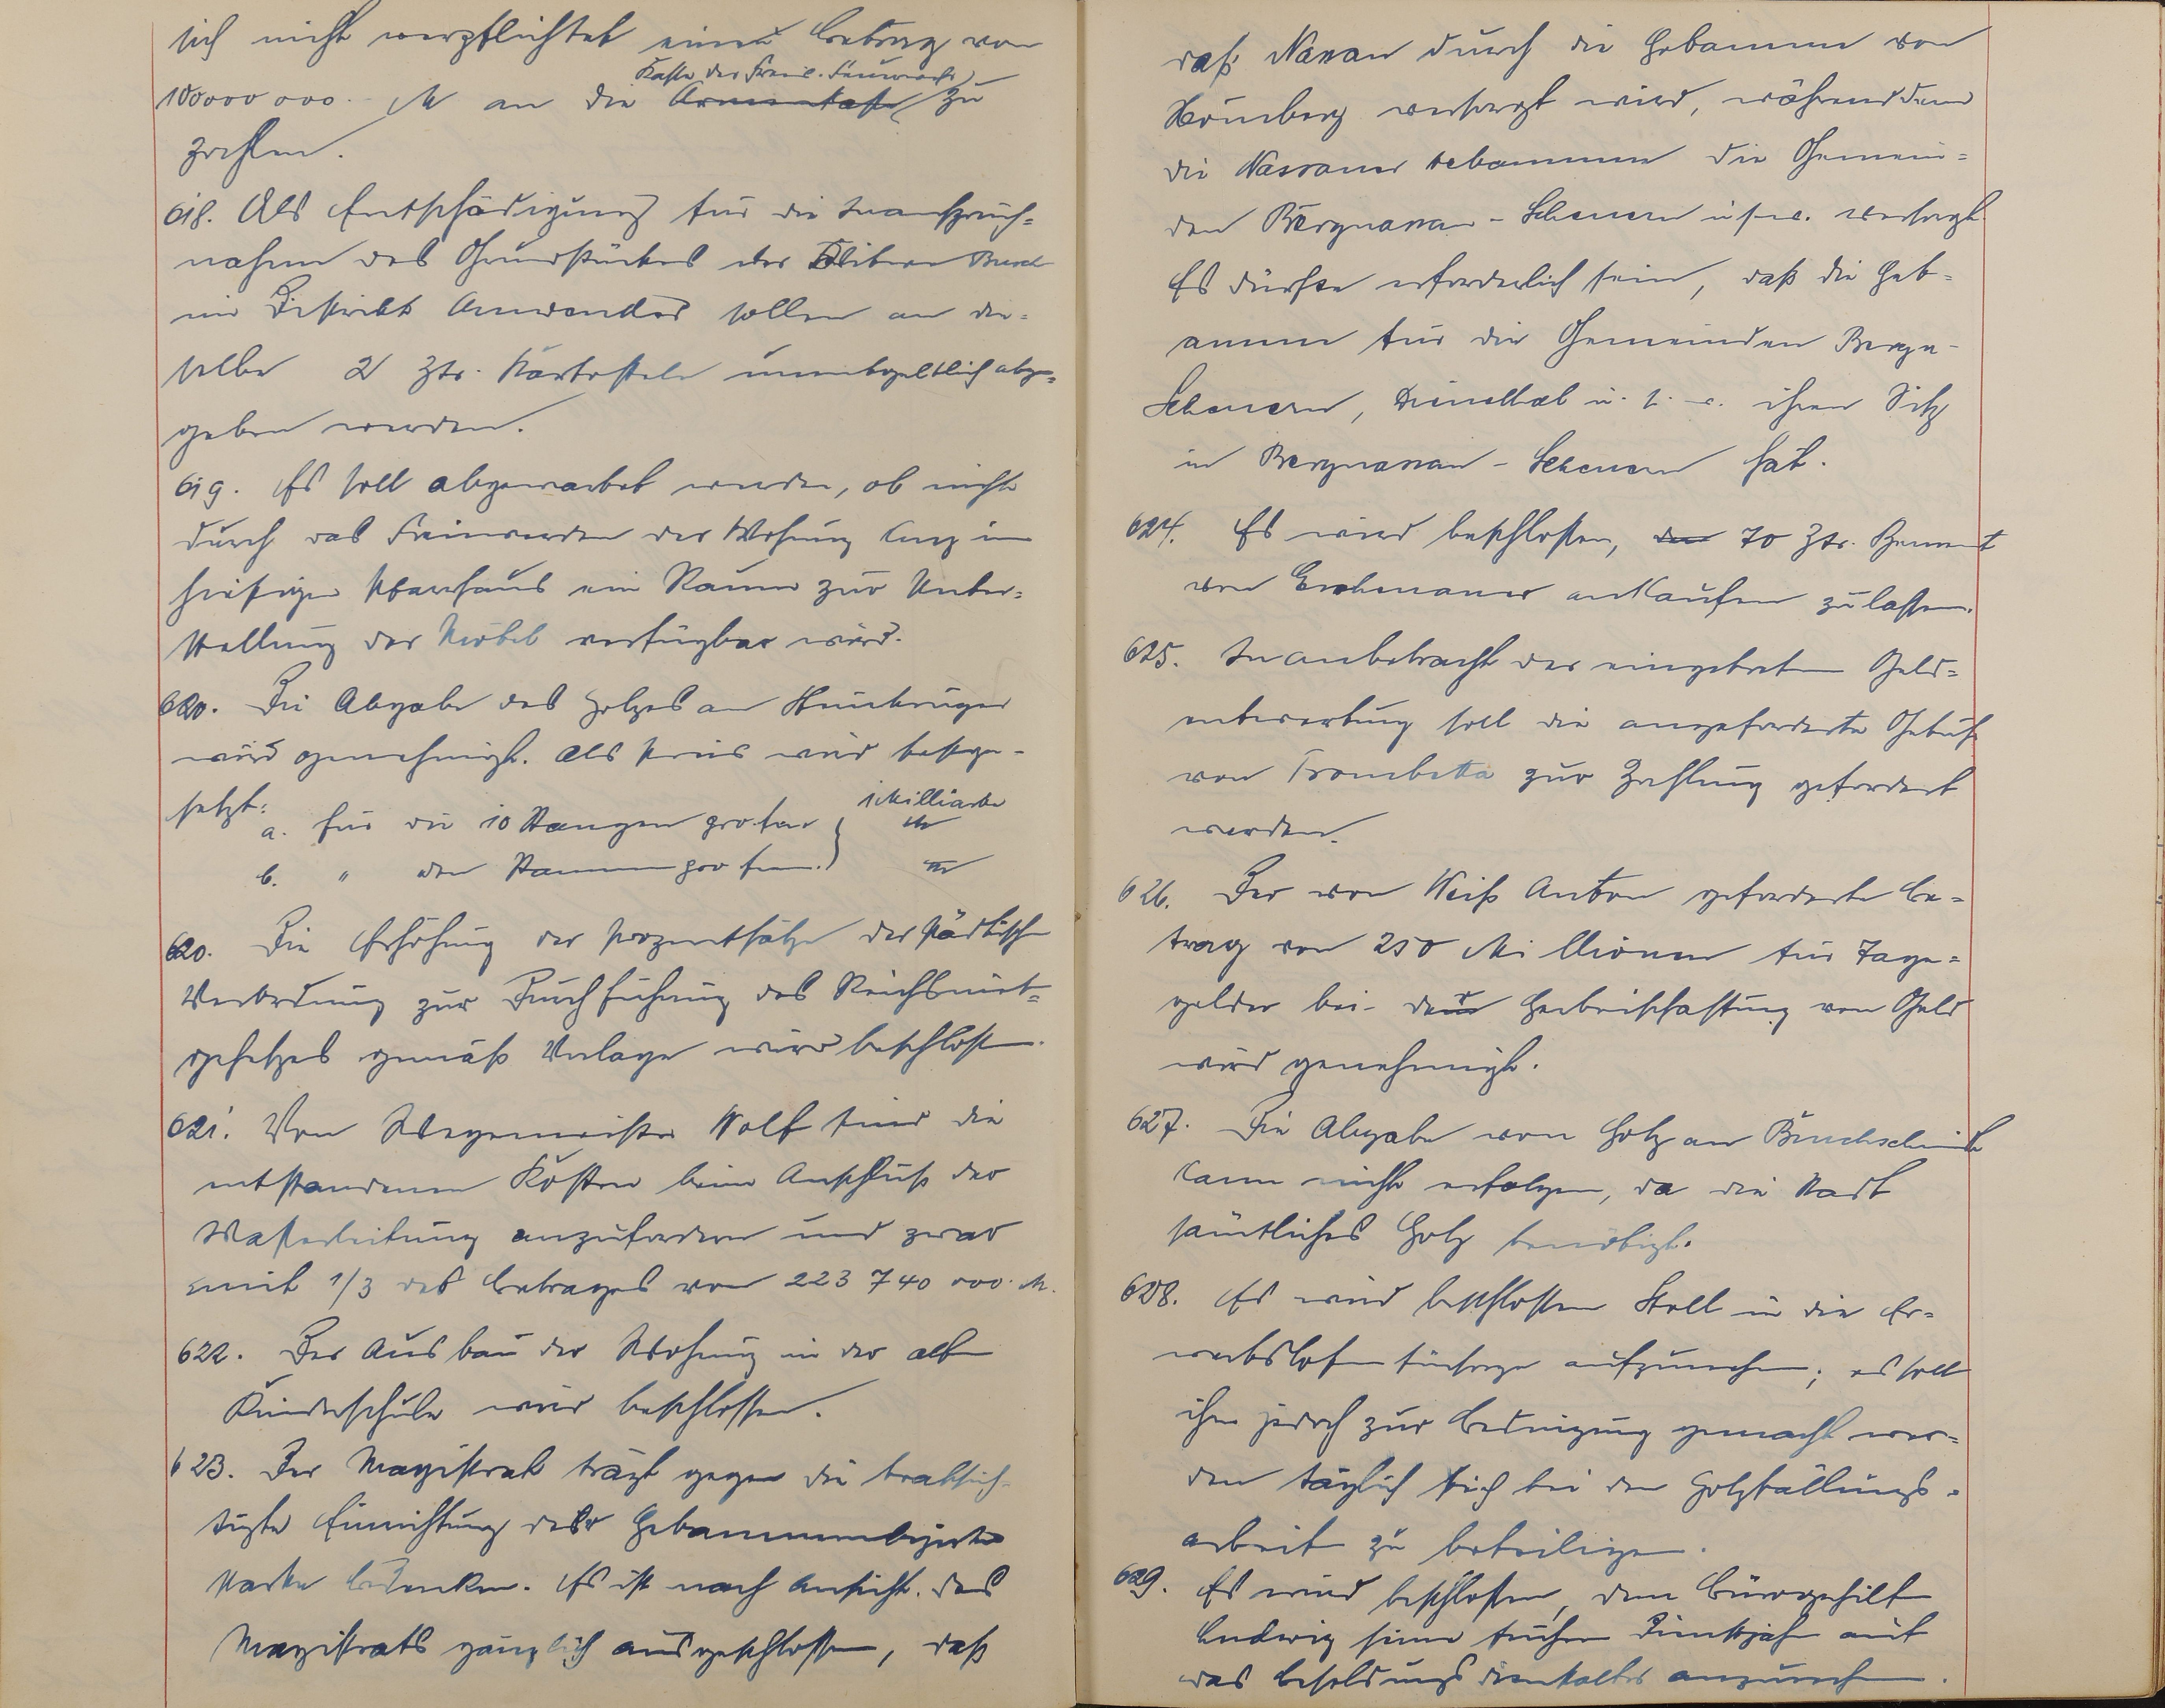 sich nicht verpflichtet einen Betrag von
Kasse der Freiw. Feuerwehr
100000 000.- M an die Armenkasse zu
zahlen.
618. Als Entschädigung für die Inanspruch-
nahme des Grundstückes der Busch
im Distrikt sollen an die-
selbe 2 Ztr. Kartoffeln unentgeltlich abge-
geben werden.
619. Es soll abgewartet werden, ob nicht
durch das Freiwerden der Wohnung im
hiesigen Pfarrhaus ein Raum zur Unter-
stellung der Möbel verfügbar wird.
620. Die Abgabe des Holzes an
wird genehmigt. Als Preis wird festge-
setzt:
1 Milliarde
a. für die 10 Stangen pro fm } M
b. " den Stamm pro fm. } M
620. Die Erhöhung der Prozentsätze der städtischen
Verordnung zur Durchführung des Reichsmiet-
gesetzes gemäß Vorlage wird beschlossen.
621. Von Wegemeister Wolf sind die
entstandenen Kosten beim Anschluß der
Wasserleitung anzufordern und zwar
mit 1/3 des Betrages von 223 740 000. M.
622. Der Ausbau der Wohnung in der alten
Kinderschule wird beschlossen.
623. Der Magistrat trägt gegen die beabsich-
tigte Einrichtung der Hebammenbezirke
starke Bedenken. Es ist nach Ansicht des
Magistrats gänzlich ausgeschlossen, daß
daß Nassau durch die Hebamme von
Hömberg versorgt wird, während dem
die Nassauer Hebamme die Gemein-
den Bergnassau-Scheuern u.s.w. versorgt
Es dürfte erforderlich sein, daß die Heb-
amme für die Gemeinden Bergn-
Scheuern, Dienethal u.s.w. ihren Sitz
in Bergnassau-Scheuern hat.
624. Es wird beschlossen, den 70 Ztr. Zement
von ankaufen zu lassen.
625. In anbetracht der eingetretenen Geld-
entwertung soll die angeforderte Gebühr
von Trombetta zur Zahlung gefordert
werden.
626. Der von Weiß Anton geforderte Be-
trag von 250 Millionen für Tage-
gelder bei der Herbeischaffung von Geld
wird genehmigt.
627. Die Abgabe von Holz an
kann nicht erfolgen, da die Stadt
sämtliches Holz benötigt.
628. Es wird beschlossen Stoll in die Er-
werbslosenfürsorge aufzunehmen; es soll
ihm jedoch zur Bedingung gemacht wer-
den täglich sich bei den Holzfällungs-
arbeiten zu beteiligen.
629. Es wird beschlossen, dem Bürogehilfen
Ludwig seine frühere Dienstjahre auf
das Besoldungsdienstalter anzurechnen.